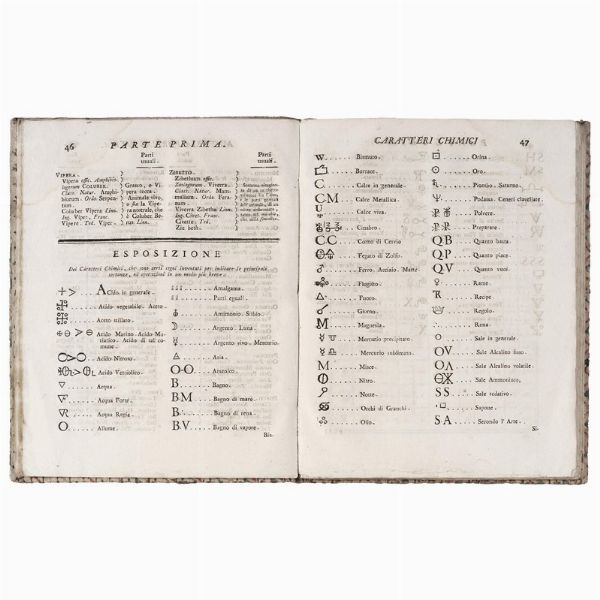 46 PARTE PRIMA.
Parti
usuali.
VIPERA.
Vipera offic. Amphibiologorum COLUBER.
Class. Natur. Amphibiorum. Ordo Serpentium.
Coluber Vipera Linn.
Ing. Viper. Franc.
Vipere. Ted. Viper.
Grasso, e Vipera secca.
Animale vivo,
ZIBETTO.
Zibethum offic.
Zoologorum. Viverra.
Class. Natur. Mammalium. Ordo Ferarum.
Viverra Zibetha Linn.
Ing. Civet. Franc.
Civette. Ted.
Zibeth.
Parti
usuali.
ESPOSIZIONE
Dei Caratteri Chimici, che sono certi segni inventati per indicare le principali
sostanze, ed operazioni in un modo più breve.
Acido. in generale.
Acido vegetabile. Aceto.
Aceto stillato.
Acido Marino. Acido Muriatico. Acido di sal comune.
Acido Nitroso.
Acido Vetriolico.
Acqua.
Acqua Forte.
Acqua Regia.
Allume.
Amalgama.
Parti eguali.
Antimonio. Stibio.
Argento. Luna.
Argento vivo. Mercurio.
Aria.
Arsenico.
B. Bagno.
BM Bagno di mare.
B. Bagno di rena.
BV Bagno di vapore.
Bis.
CARATTERI CHIMICI 47
W Bismuto.
Borrace.
C Calce in generale.
CM Calce Metallica.
Calce viva.
Cinabro.
CC Corno di Cervio
Fegato di Zolfo.
Ferro. Acciaio. Marte
Flogisto.
Fuoco.
Giorno.
M Magnesia.
Mercurio precipitato.
Mercurio sublimato.
Mese.
Nitro.
Notte.
Occhi di Granchi.
Olio.
Orina.
Oro.
Piombo. Saturno.
Potassa. Ceneri clavellate.
Polvere.
Preparare.
QB Quanto basta.
QP Quanto piace.
QV Quanto vuoi.
Rame.
Recipe
Regolo.
Rena.
Sale in generale
Sale Alcalino fisso.
Sale Alcalino volatile.
Sale Ammoniaco.
SS Sale sedativo.
Sapone.
SA Secondo l' Arte.
Si.